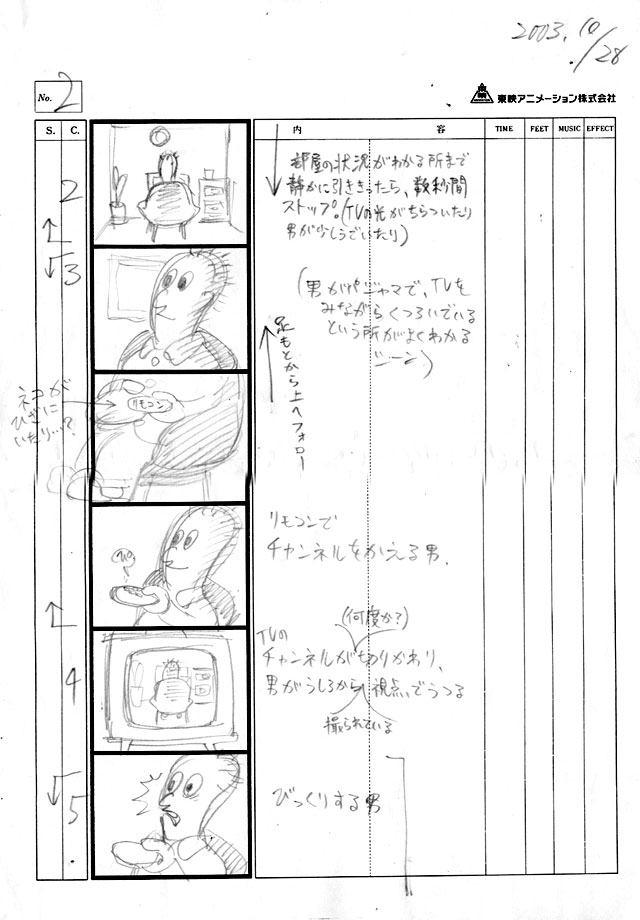 2003.10/28
No. 2
東映アニメーション株式会社
S. C. 内 容 TIME FEET MUSIC EFFECT
2
部屋の状況がわかる所まで
静かに引ききったら、数秒間
ストップ。(TVの光がちらついたり
男が少しうごいたり)
3
(男がパジャマで、TVを
みながらくつろいでいる
という所がよくわかる
シーン)
足もとから上へフォロー
ネコが
ひざに
いたり…?
リモコン
リモコンで
チャンネルをかえる男.
4
(何度か?)
TVの
チャンネルが切りかわり、
男がうしろから視点でうつる
撮られている
5
びっくりする男